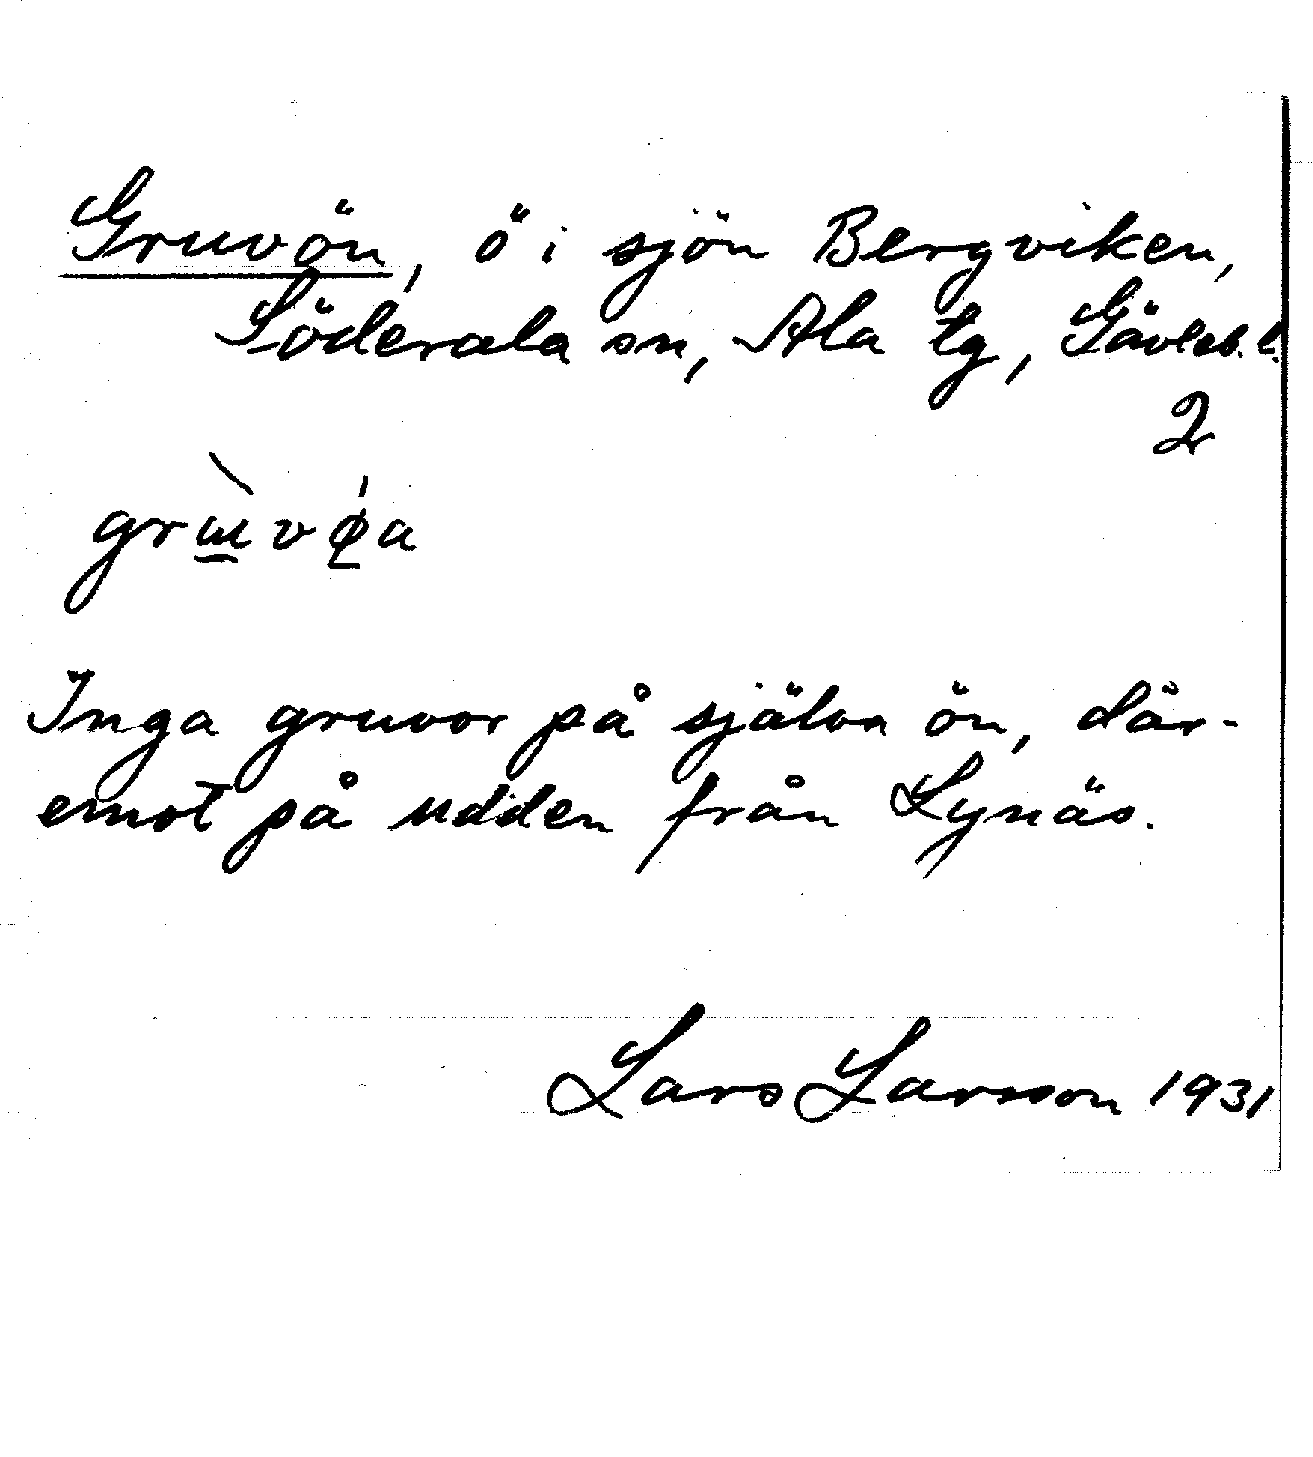 Gruvön, ö i sjön Bergviken,
Söderala sn, Ala tg, Gävleb. l.
2
grɯ̲̀vǿ̲a
Inga gruvor på själva ön, där-
emot på udden från Lynäs.
Lars Larsson 1931